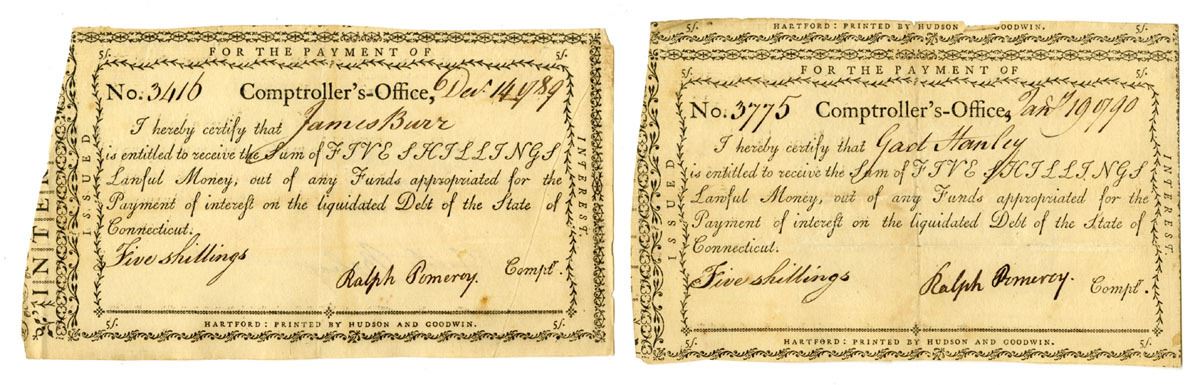 5/. FOR THE PAYMENT OF 5/.
No. 3416 Comptroller's-Office, Decr. 14 1789
I hereby certify that James Burr
is entitled to receive the Sum of FIVE SHILLINGS
Lawful Money, out of any Funds appropriated for the
Payment of interest on the liquidated Debt of the State of
Connecticut.
Five shillings
Ralph Pomeroy. Comptr.
ISSUED
INTEREST.
5/. HARTFORD: PRINTED BY HUDSON AND GOODWIN. 5/.
5/. HARTFORD: PRINTED BY HUDSON AND GOODWIN. 5/.
FOR THE PAYMENT OF
No. 3775 Comptroller's-Office, Jany 19 1790
I hereby certify that Gad Stanley
is entitled to receive the Sum of FIVE SHILLINGS
Lawful Money, out of any Funds appropriated for the
Payment of interest on the liquidated Debt of the State of
Connecticut.
Five shillings
Ralph Pomeroy. Comptr.
ISSUED
INTEREST.
5/. HARTFORD: PRINTED BY HUDSON AND GOODWIN. 5/.